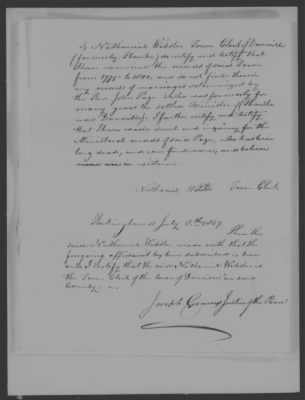 I Nathaniel Webster Town Clerk of Danville
(formerly Hawke) do certify and testify that
I have examined the records of said Town
from 1775 to 1800. and do not find therein
any records of marriages solemnized by
the Rev. John Page. Who was formerly for
many years the settled Minister of Hawke
now Danville. I further certify and testify
that I have made search and inquiry for the
Ministerial records of said Page, who has been
long dead, and can find none, and believe
none are in existence.
Nathaniel Webster Town Clerk
Rockingham ss July 8th 1839. Then the
said Nathaniel Webster made oath that the
foregoing affidavit by him subscribed is true
and I certify that the said Nathaniel Webster is
the Town Clerk of the town of Danville in said
County.
Joseph Justice of the Peace